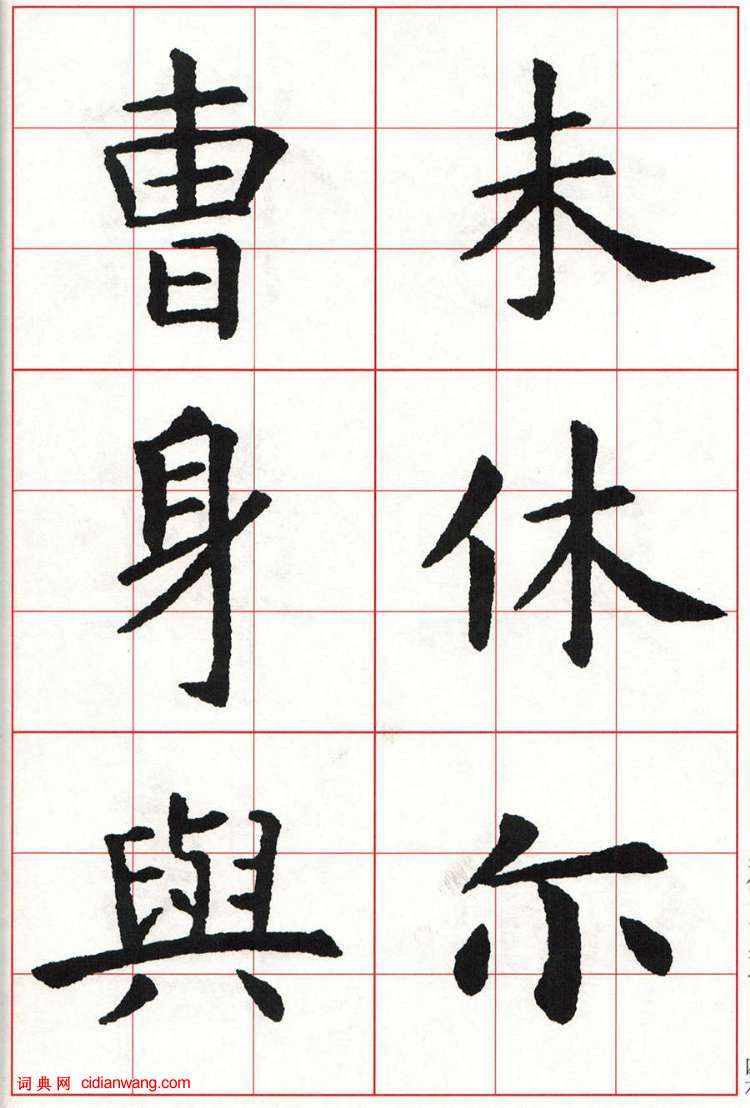 未休尔
曺身與
词典网 cidianwang.com